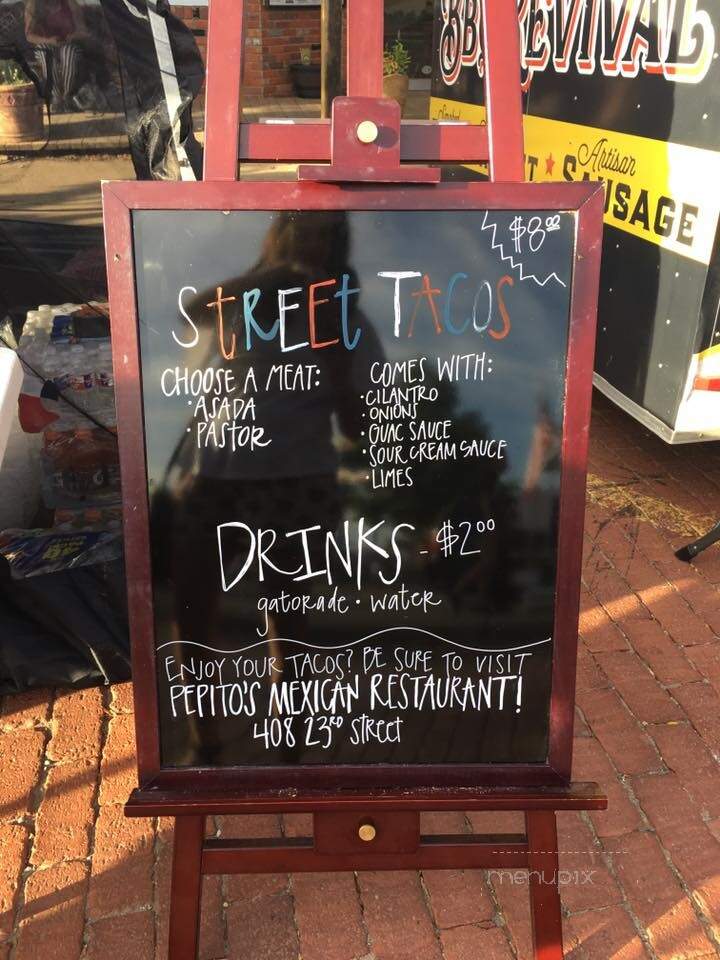 BBREVIVAL
Artisan
SAUSAGE
$8.00
STREET TACOS
CHOOSE A MEAT:
• ASADA
• PASTOR
COMES WITH:
• CILANTRO
• ONIONS
• GUAC SAUCE
• SOUR CREAM SAUCE
• LIMES
DRINKS - $2.00
gatorade • water
ENJOY YOUR TACOS? BE SURE TO VISIT
PEPITO'S MEXICAN RESTAURANT!
408 23RD STREET
menupix